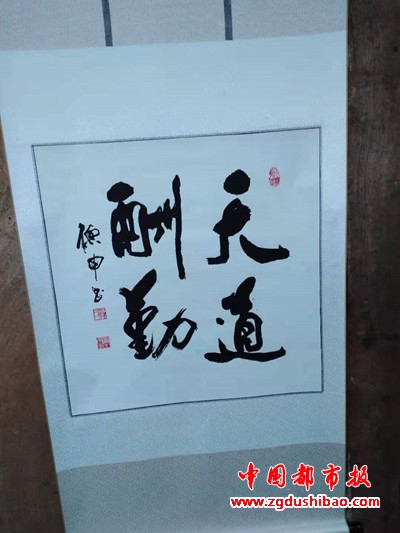 天道
酬勤
德申书
中国都市报
www.zgdushibao.com